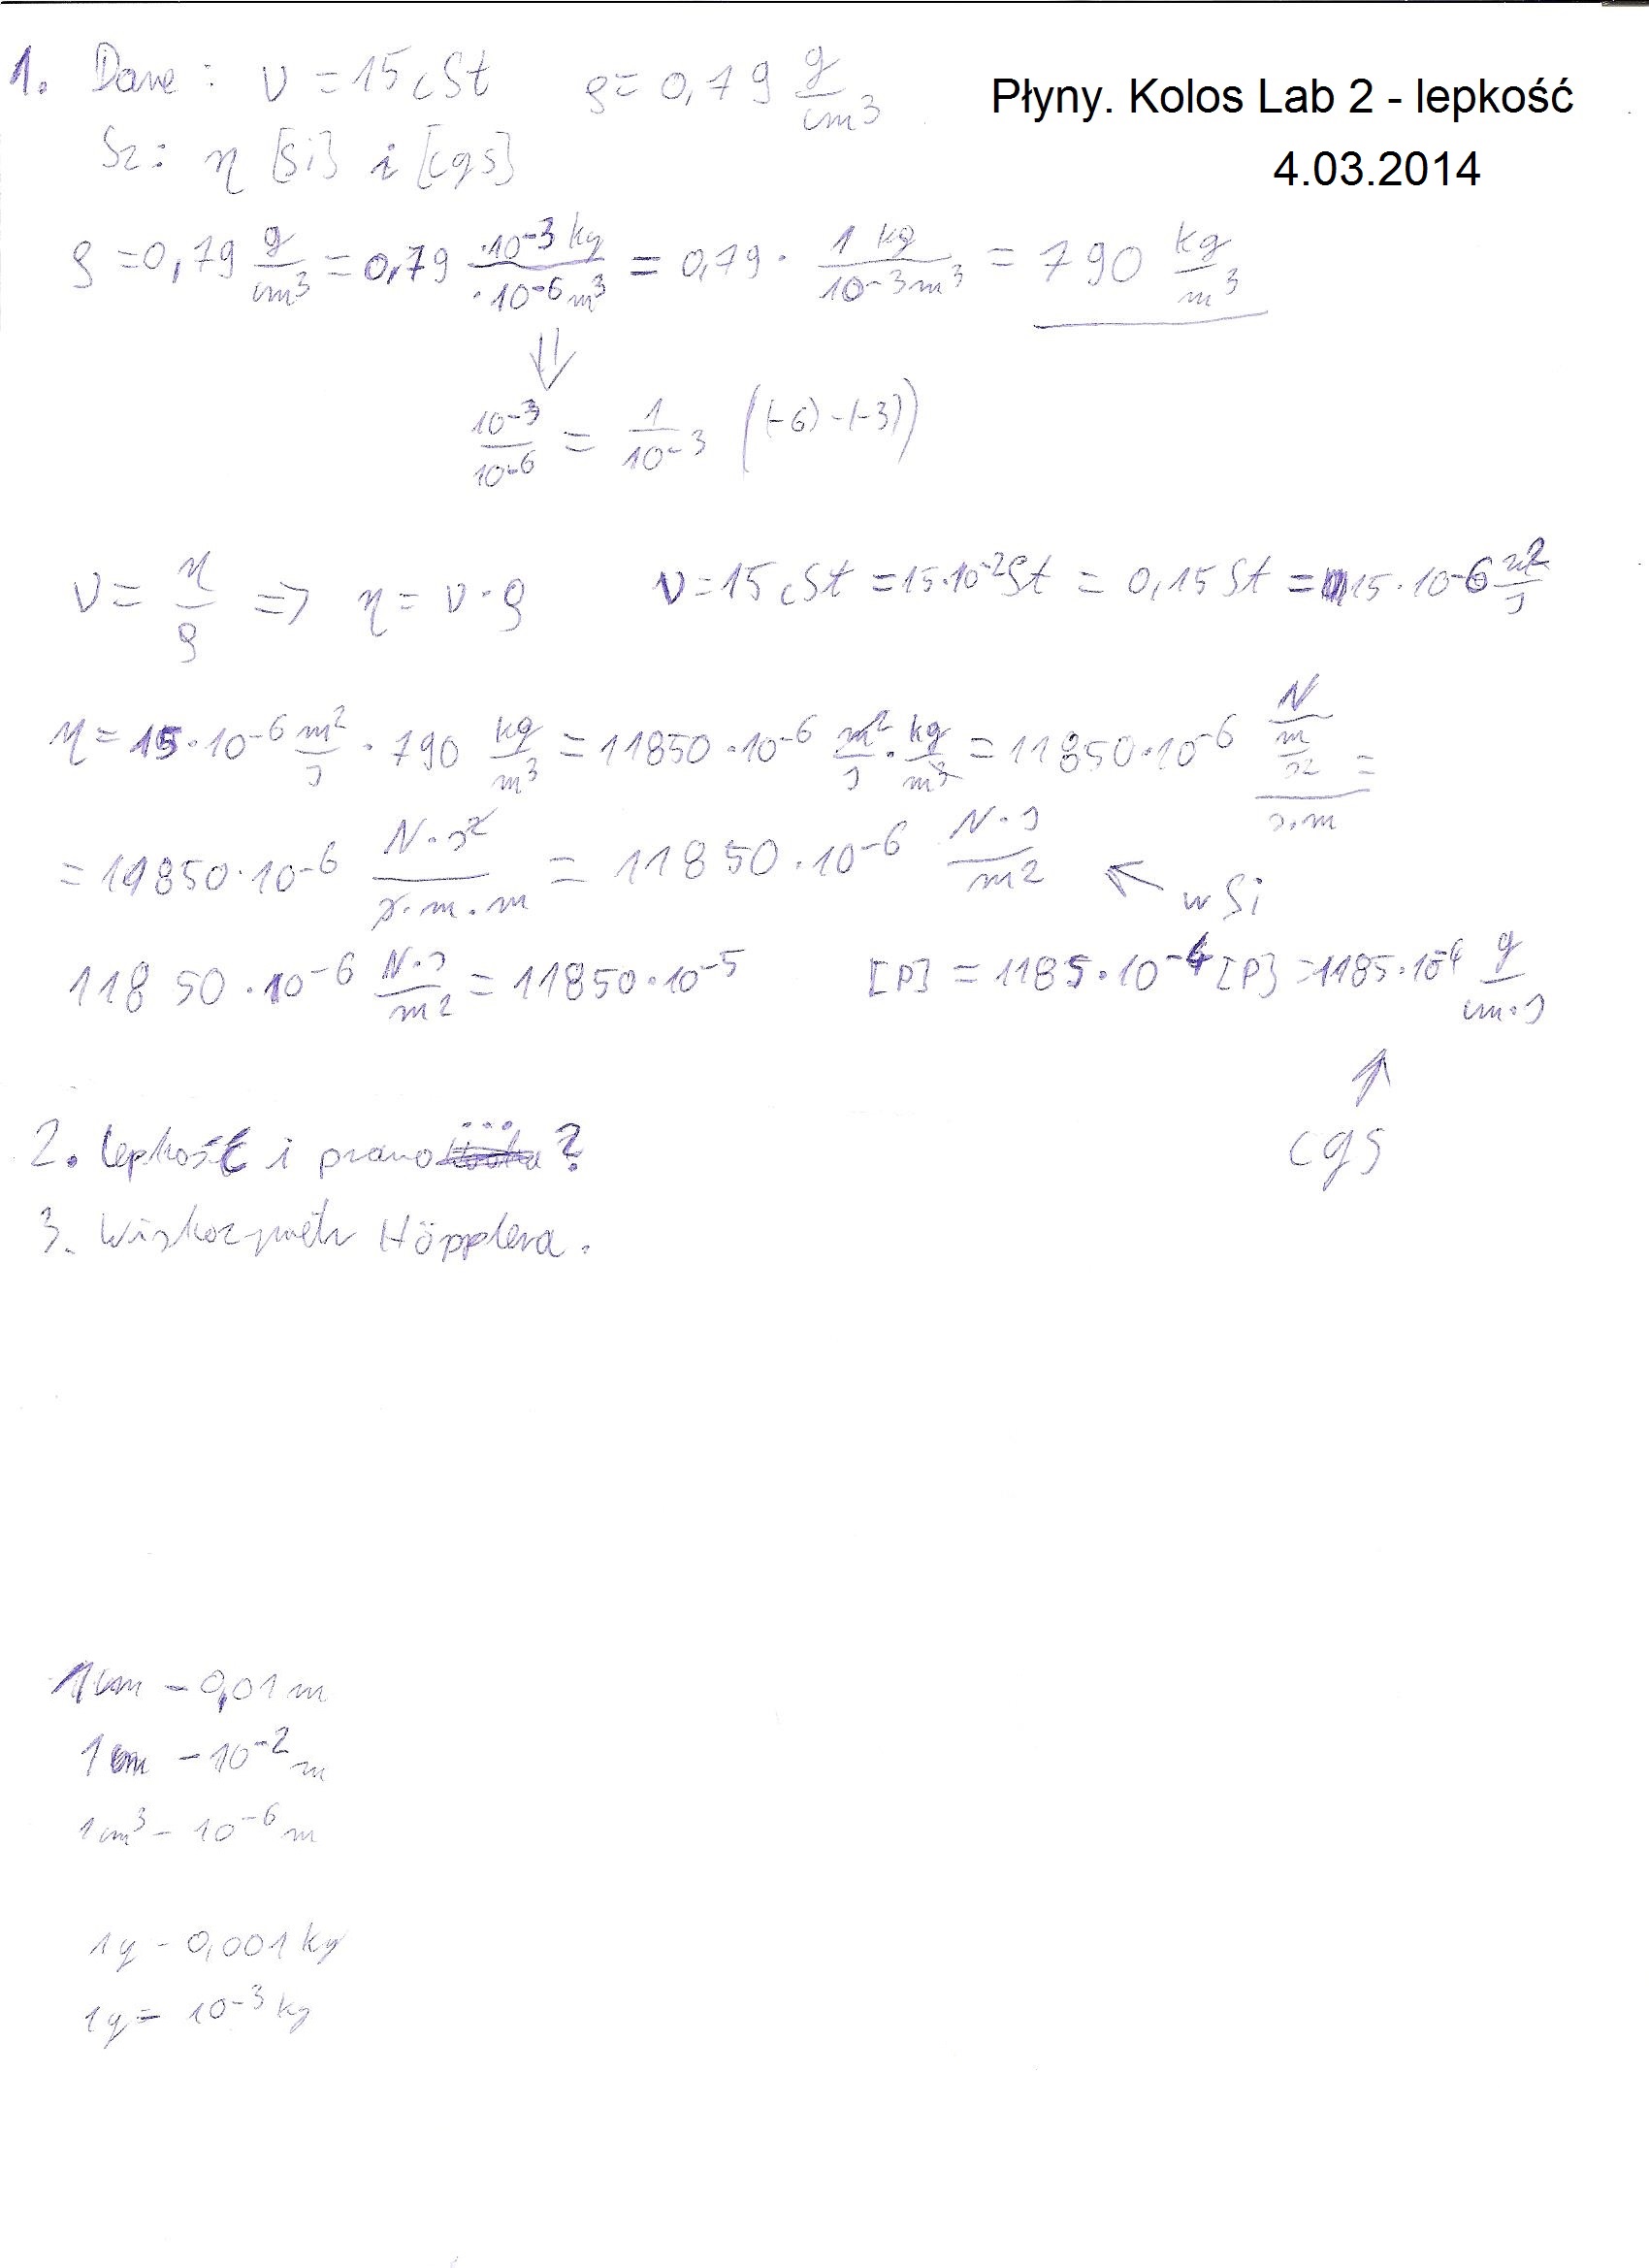 Płyny. Kolos Lab 2 - lepkość
4.03.2014
1. Dane: ν = 15 cSt ρ = 0,79 g/cm³
Sz: η [Si] i [cgs]
ρ = 0,79 g/cm³ = 0,79 ·10⁻³ kg/·10⁻⁶ m³ = 0,79 · 1 kg/10⁻³ m³ = 790 kg/m³
⇓
10⁻³/10⁻⁶ = 1/10⁻³ ((-6)-(-3))
ν = η/ρ => η = ν · ρ ν = 15 cSt = 15·10⁻² St = 0,15 St = 15·10⁻⁶ m²/s
η = 15·10⁻⁶ m²/s · 790 kg/m³ = 11850·10⁻⁶ m²/s · kg/m³ = 11850·10⁻⁶ N/m/s²/s·m =
= 11850·10⁻⁶ N·s²/s·m·m = 11850·10⁻⁶ N·s/m² ← w Si
11850·10⁻⁶ N·s/m² = 11850·10⁻⁵ [P] = 1185·10⁻⁴ [P] = 1185·10⁻⁴ g/cm·s
↑
cgs
2. Lepkość i prawo ...?
3. Wiskozymetr Höpplera.
1cm - 0,01 m
1cm - 10⁻² m
1cm³ - 10⁻⁶ m
1g - 0,001 kg
1g = 10⁻³ kg